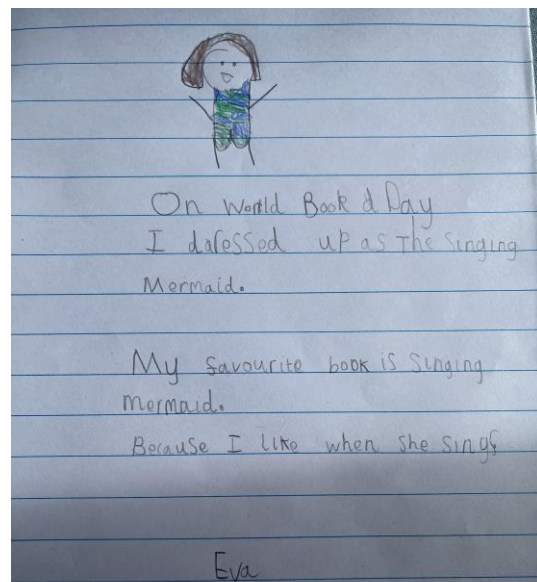 On World Book d Day
I daressed up as The Singing
Mermaid.
My favourite book is Singing
mermaid.
Because I like when she sings
Eva